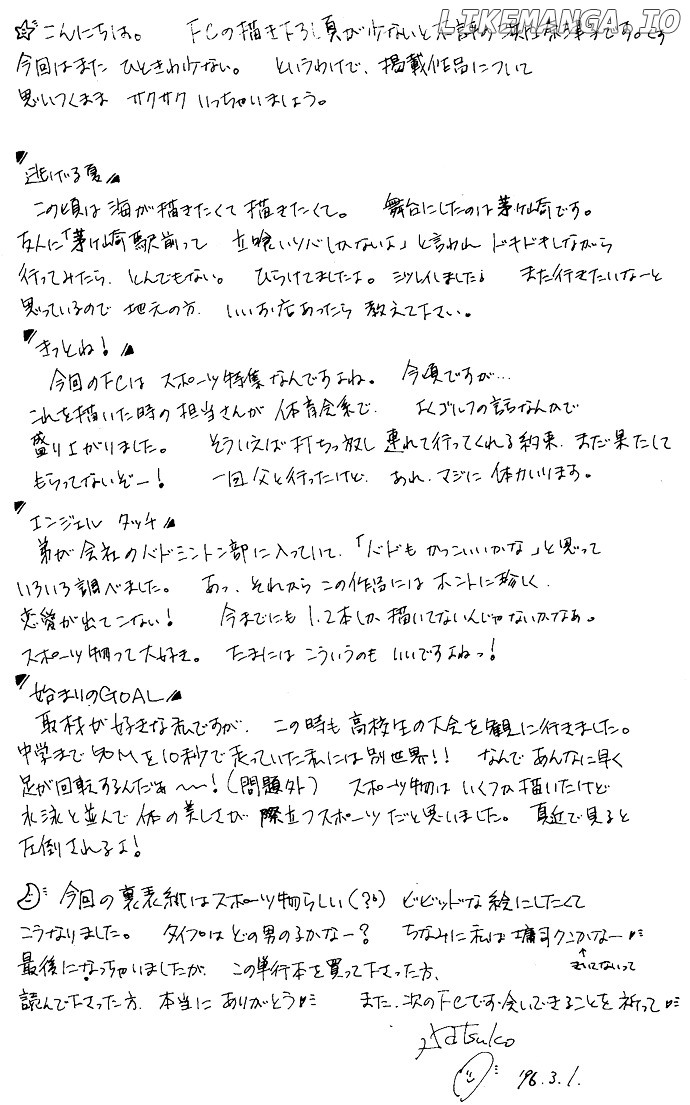 LIKEMANGA.IO
☆こんにちは。 FCの描き下ろし頁が少ないと
今回はまた ひときわ少ない。 というわけで、掲載作品について
思いつくまま サクサク いっちゃいましょう。
"逃げる夏"
この頃は海が描きたくて描きたくて。 舞台にしたのは茅ヶ崎です。
友人に「茅ヶ崎駅前って 立喰いソバしかないよ」と言われ ドキドキしながら
行ってみたら、とんでもない。 ひらけてましたよ。シツレイしました。 また行きたいなーと
思っているので 地元の方、いいお店あったら 教えて下さい。
"きっとね!"
今回のFCは スポーツ特集なんですよね。 今頃ですが…
これを描いた時の担当さんが 体育会系で、 よくゴルフの話なんかで
盛り上がりました。 そういえば打ちっ放し 連れて行ってくれる約束、まだ果たして
もらってないぞー! 一回父と行ったけど、 あれ、マジに 体力いります。
"エンジェル タッチ"
弟が会社のバドミントン部に入っていて、「バドも かっこいいかな」と思って
いろいろ調べました。 あっ、それから この作品には ホントに珍しく、
恋愛が出てこない! 今までにも 1、2本しか描いてないんじゃないかなあ。
スポーツ物って大好き。 たまには こういうのも いいですよねっ!
"始まりのGOAL"
取材が好きな私ですが、 この時も 高校生の大会を観に行きました。
中学まで50Mを10秒で走っていた私には別世界!! なんで あんなに早く
足が回転するんだぁ〜〜!(問題外) スポーツ物は いくつか描いたけど
水泳と並んで 体の美しさが 際立つスポーツだと思いました。 真近で見ると
圧倒されるよ!
今回の裏表紙はスポーツ物らしい(?) ビビッドな絵にしたくて
こうなりました。 タイプはどの男のコかなー? ちなみに私は クンかなー
きいてないって
最後になっちゃいましたが、 この単行本を買って下さった方、
読んで下さった方、本当に ありがとう また、次のFCでお会いできることを祈って
Atsuko
'96.3.1.